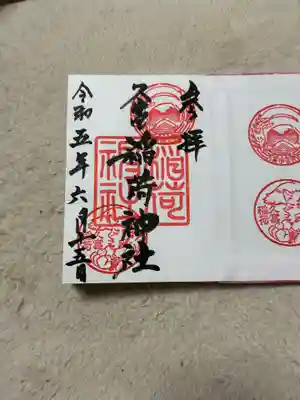 参拝
久富稲荷神社
令和五年六月十五日